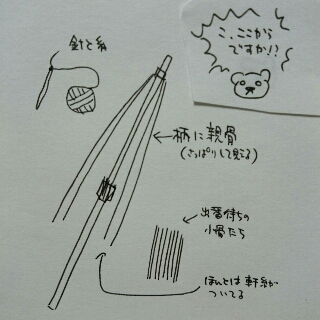 針と糸
こ、ここから
ですか!!
柄に親骨
(さっぱりして見える)
出番待ちの
小骨たち
ほんとは軒糸が
ついてる